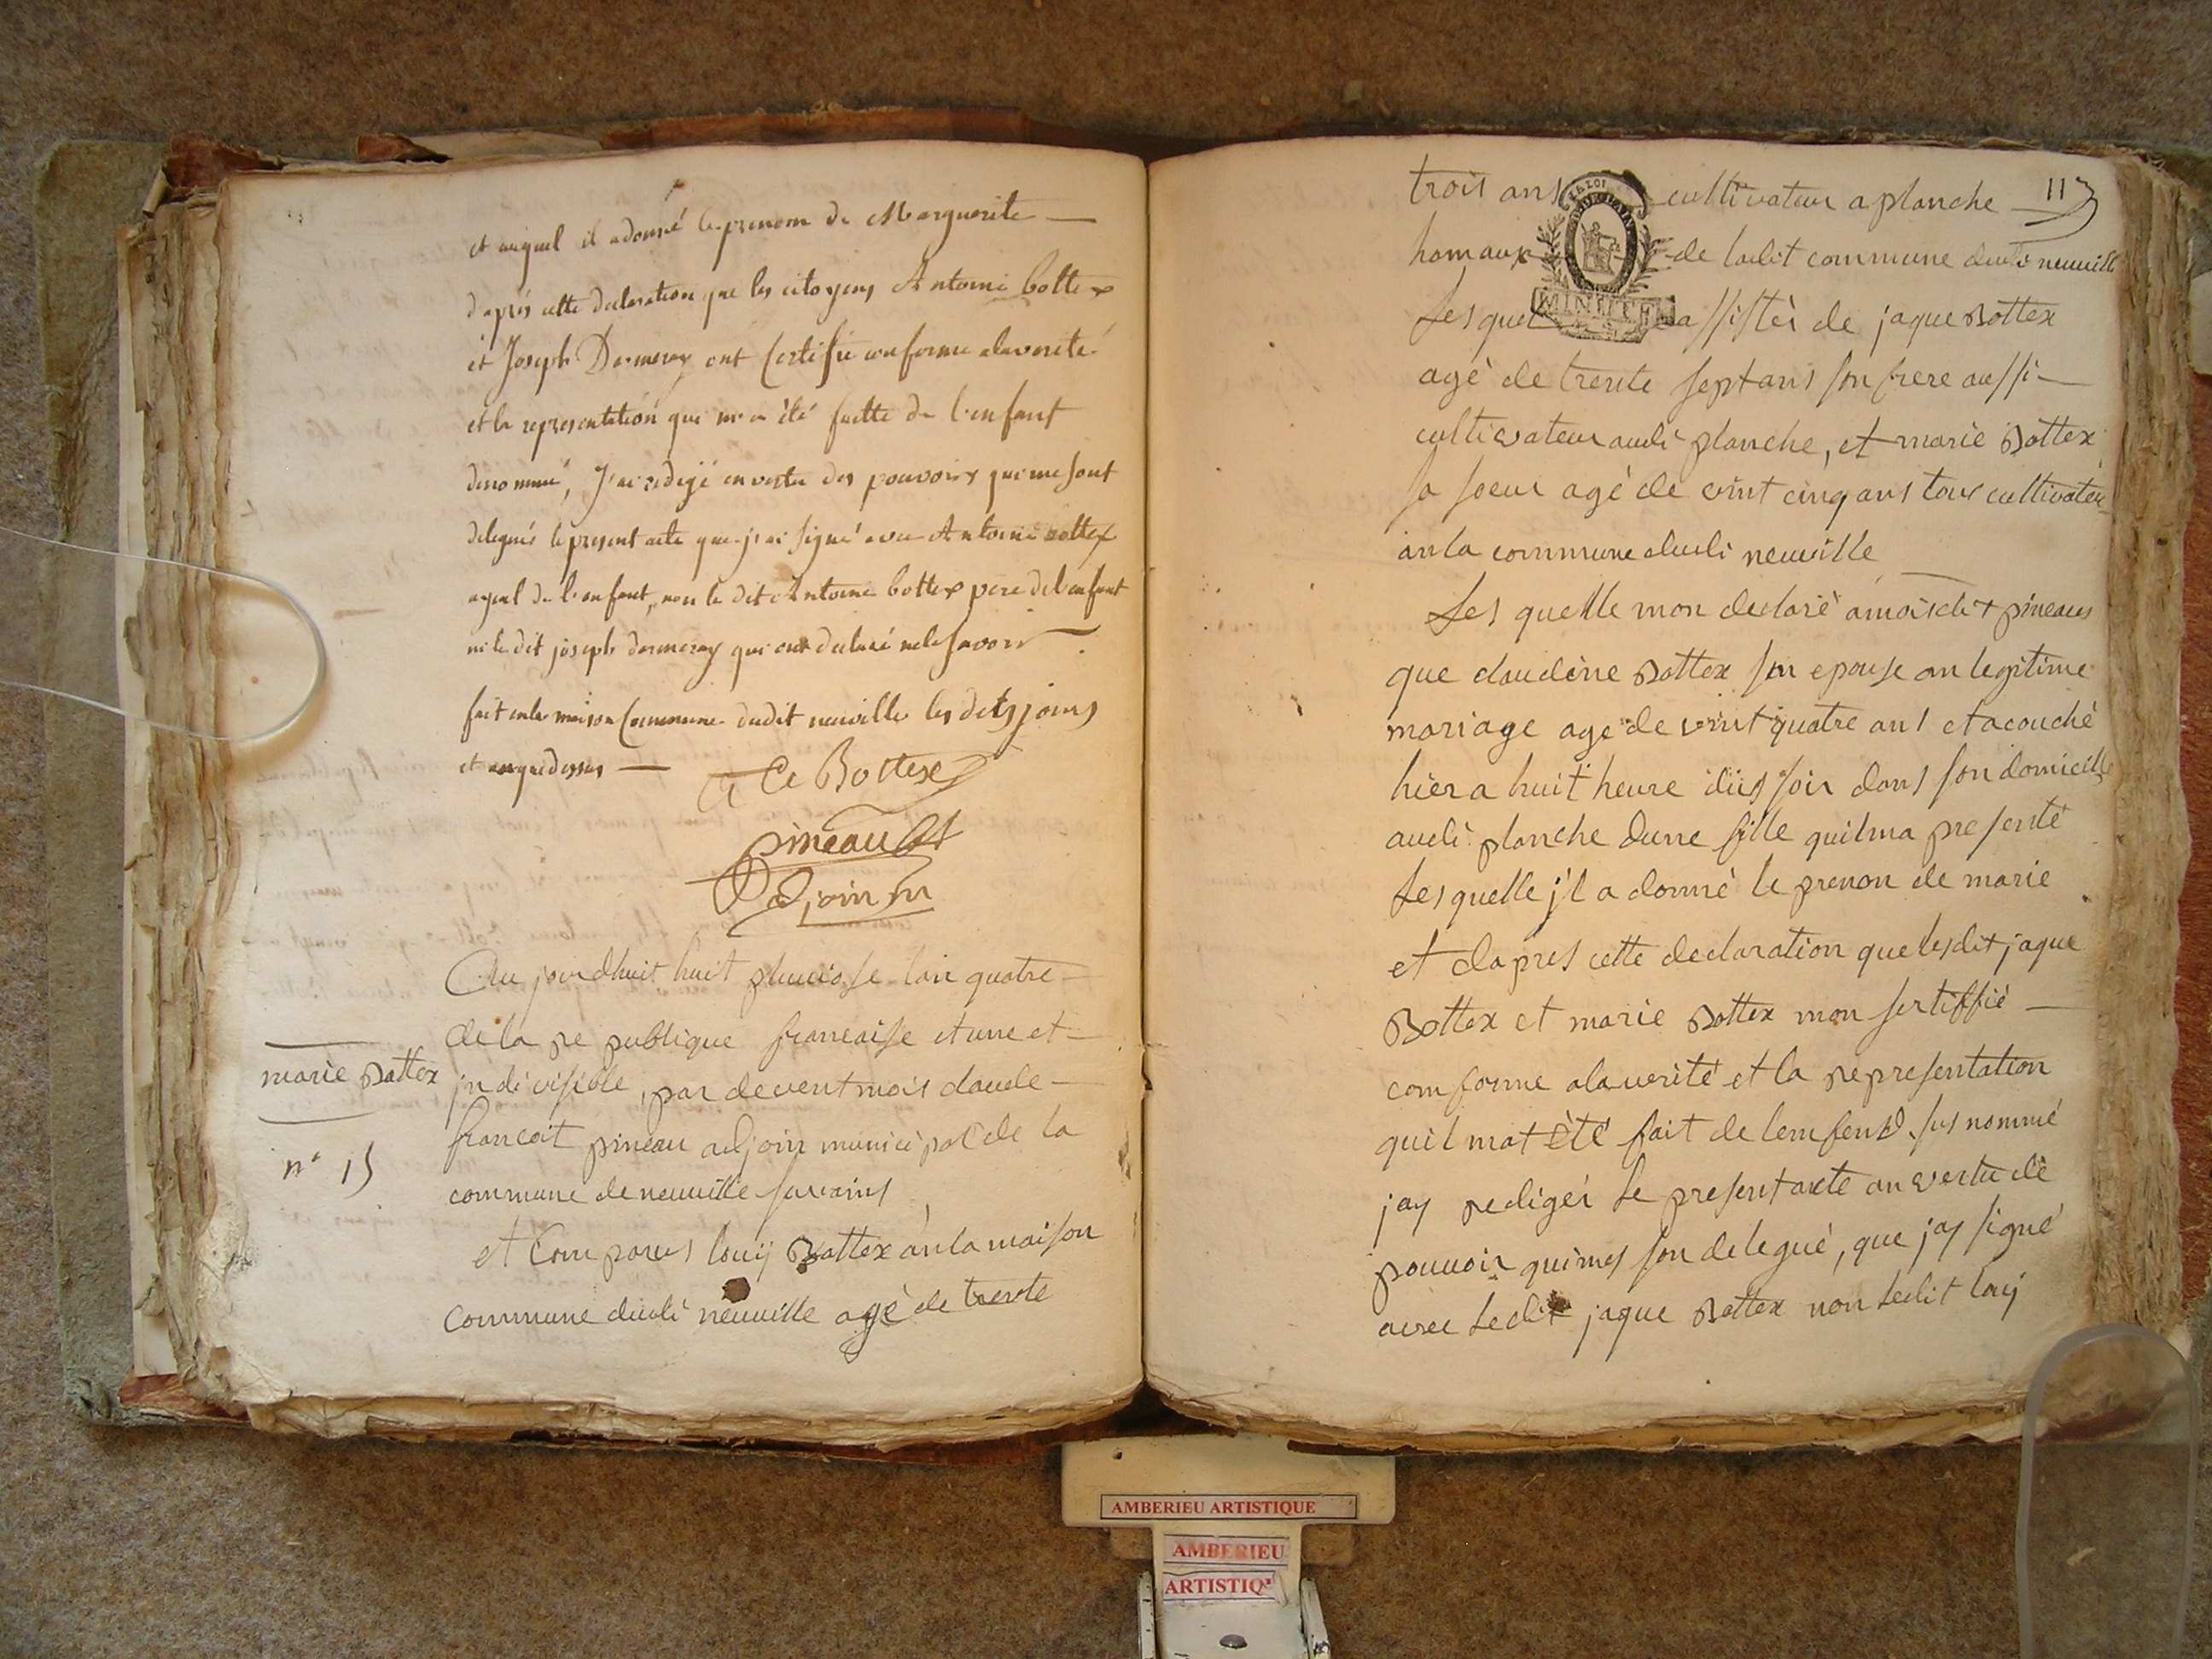 et auquel il a donné le prenom de Marguerite —
d'aprés cette declaration que les citoyens Antoine bottex
et Joseph Dermeray ont Certifié conforme a la verité
et la representation qui m'a été faitte de l'enfant
denommé, J'ai redigé en vertu des pouvoirs qui me sont
delegués le present acte que j'ai signé avec Antoine bottex
ayeul de l'enfant, non le dit Antoine bottex pere de l'enfant
ni le dit joseph dermeray qui ont declaré ne le savoir
fait en la maison Commune dudit neuville les dits jours
et an que dessus —
Bottex
pineau
adjoin
Au jourdhuit huit pluviosse lan quatre
de la re publique francaisse et une et
marie Bottex
jndivisible, par devent mois claude
francoit pineau adjoin municipal de la
n° 15
commune de neuville sur ains
et Comparus louij Bottex an la maison
Commune dudi neuville agé de trente
trois ans cultivateur a planche
11
homaux de ladit commune dudi neuville
LA LOI
MINUTE
Lesquel assistèr de jaque Bottex
agé de trente sept ans son frere aussi
cultivateur audi planche, et marie Bottex
sa soeur agè de vint cinq ans tous cultivateu
an la commune dudi neuville
Les quelle mon declaré a mois dit pineaus
que claudine Bottex son epouse an legitime
mariage age de vint quatre ans et acouché
hier a huit heure dus soir dans son domicille
audi planche dune fille quil ma presenté
Les quelle j'l a donné le prenon de marie
et dapres cette declaration que lesdit jaque
Bottex et marie Bottex mon sertiffié
comforme a la verité et la representation
quil mat été fait de lemfend sus nommé
jay redigér le present acte an vertu de
pouvoir qui mes son delegué, que jay signé
avec ledit jaque Bottex non ledit louij
AMBERIEU ARTISTIQUE
AMBERIEU
ARTISTIQ